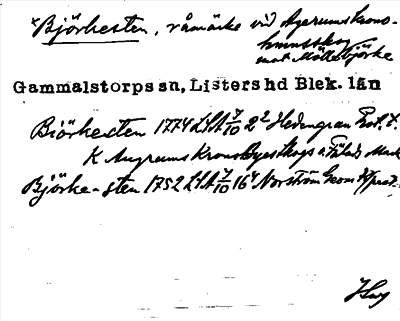 *Björkesten, råmärke vid Agerumskrono-
hmnsskog
mot Möllebjörke
Gammalstorps sn, Listers hd Blek. län
Biörkesten 1774 LSA 7/10 2² Hedengran Prot. t.
K Augrums Krono Byeskogs o. Fälads Mark
Björke-sten 1752 LSA 7/10 16⁴ Norström Geom